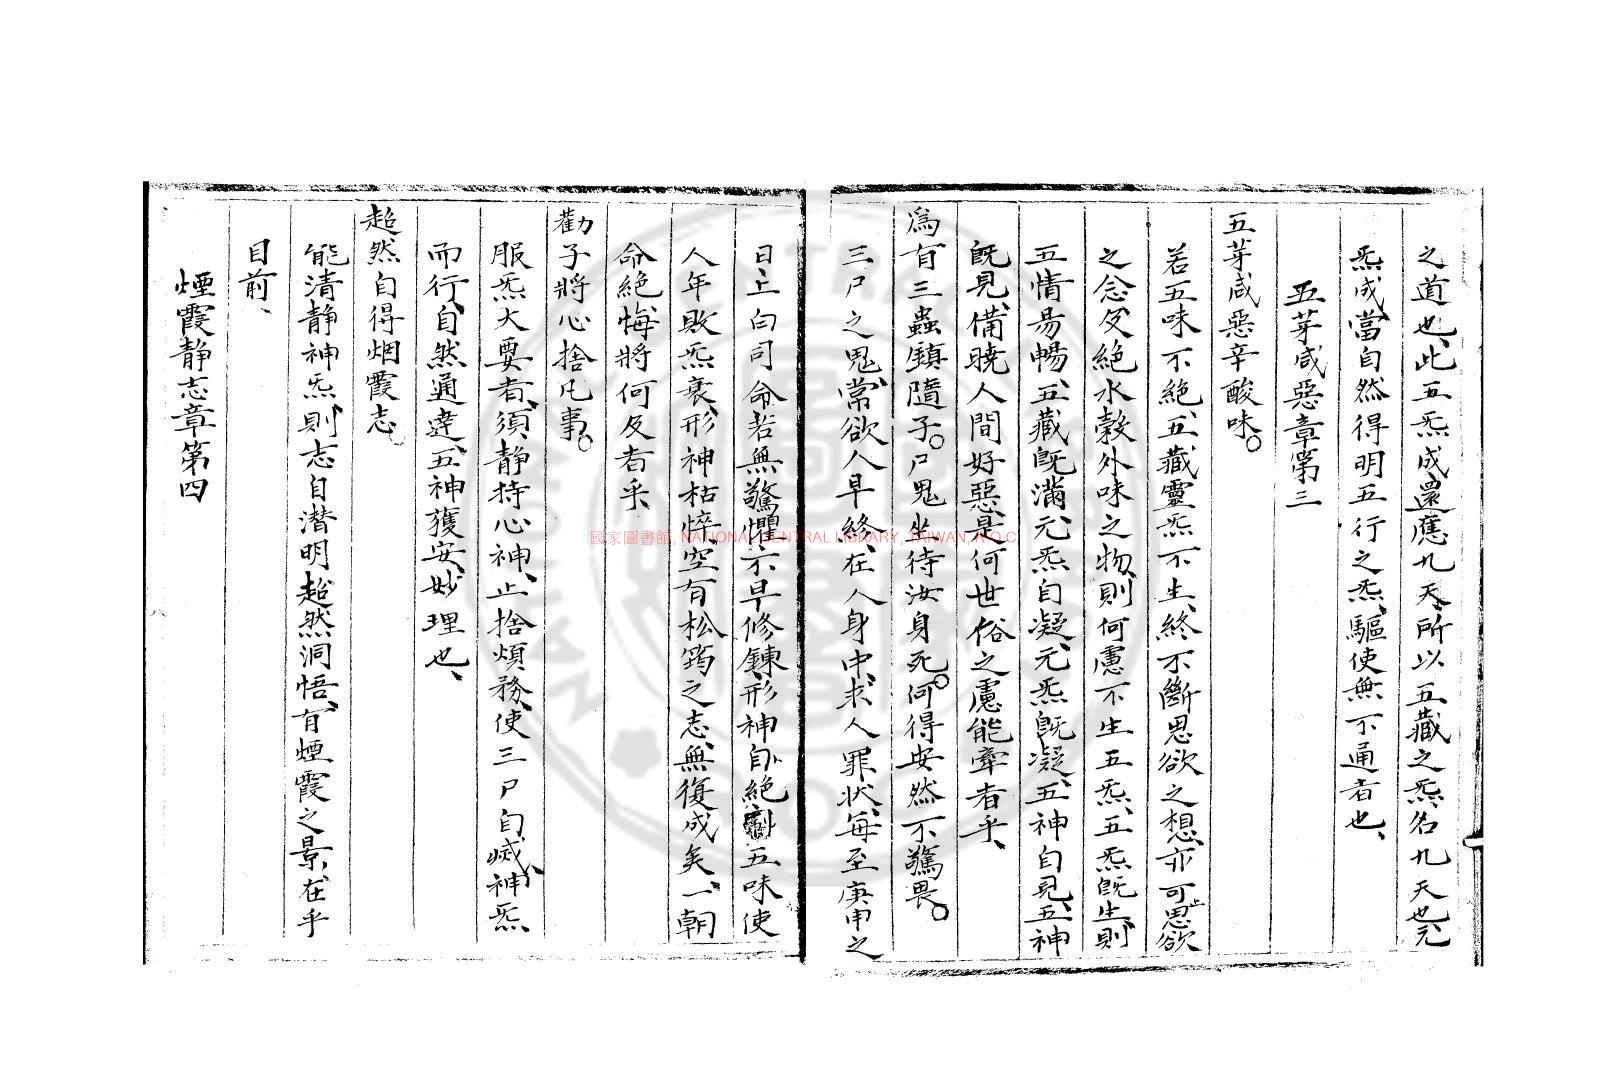 之道也、此五炁成還應九天、所以五藏之炁、名九天也、元
炁成、當自然得明五行之炁、驅使無不通者也、
五芽咸惡章第三
五芽咸惡辛酸味。
若五味不絕、五藏靈炁不生、終不斷思欲之想、亦可止思欲
之念、及絕水榖外味之物、則何慮不生五炁、五炁既生、則
五情易暢、五藏既滿、元炁自凝、元炁既凝、五神自見、五神
既見、備曉人間好惡、是何世俗之慮能牽者乎、
為有三蟲鎮隨子。尸鬼坐待汝身死。何得安然不驚畏。
三尸之鬼、常欲人早終、在人身中、求人罪狀、每至庚申之
日、上白司命、若無驚懼、不早修鍊、形神自絕、五味使
人年敗炁衰、形神枯悴、空有松筠之志、無復成矣、一朝
命絕、悔將何及者乎、
勸子將心捨凡事。
服炁大要者、須靜持心神、止捨煩務、使三尸自滅、神炁
而行、自然通達、五神獲安、妙理也、
超然自得烟霞志。
能清靜神炁、則志自潛明、超然洞悟、有煙霞之景、在乎
目前、
煙霞靜志章第四
國家圖書館, NATIONAL CENTRAL LIBRARY, TAIWAN, R.O.C